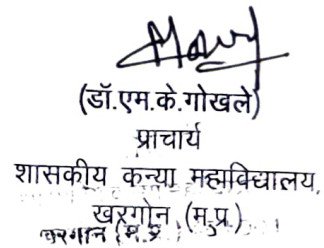 (डॉ.एम.के.गोखले)
प्राचार्य
शासकीय कन्या महाविद्यालय,
खरगोन (म.प्र.)
खरगोन (म.प्र.)